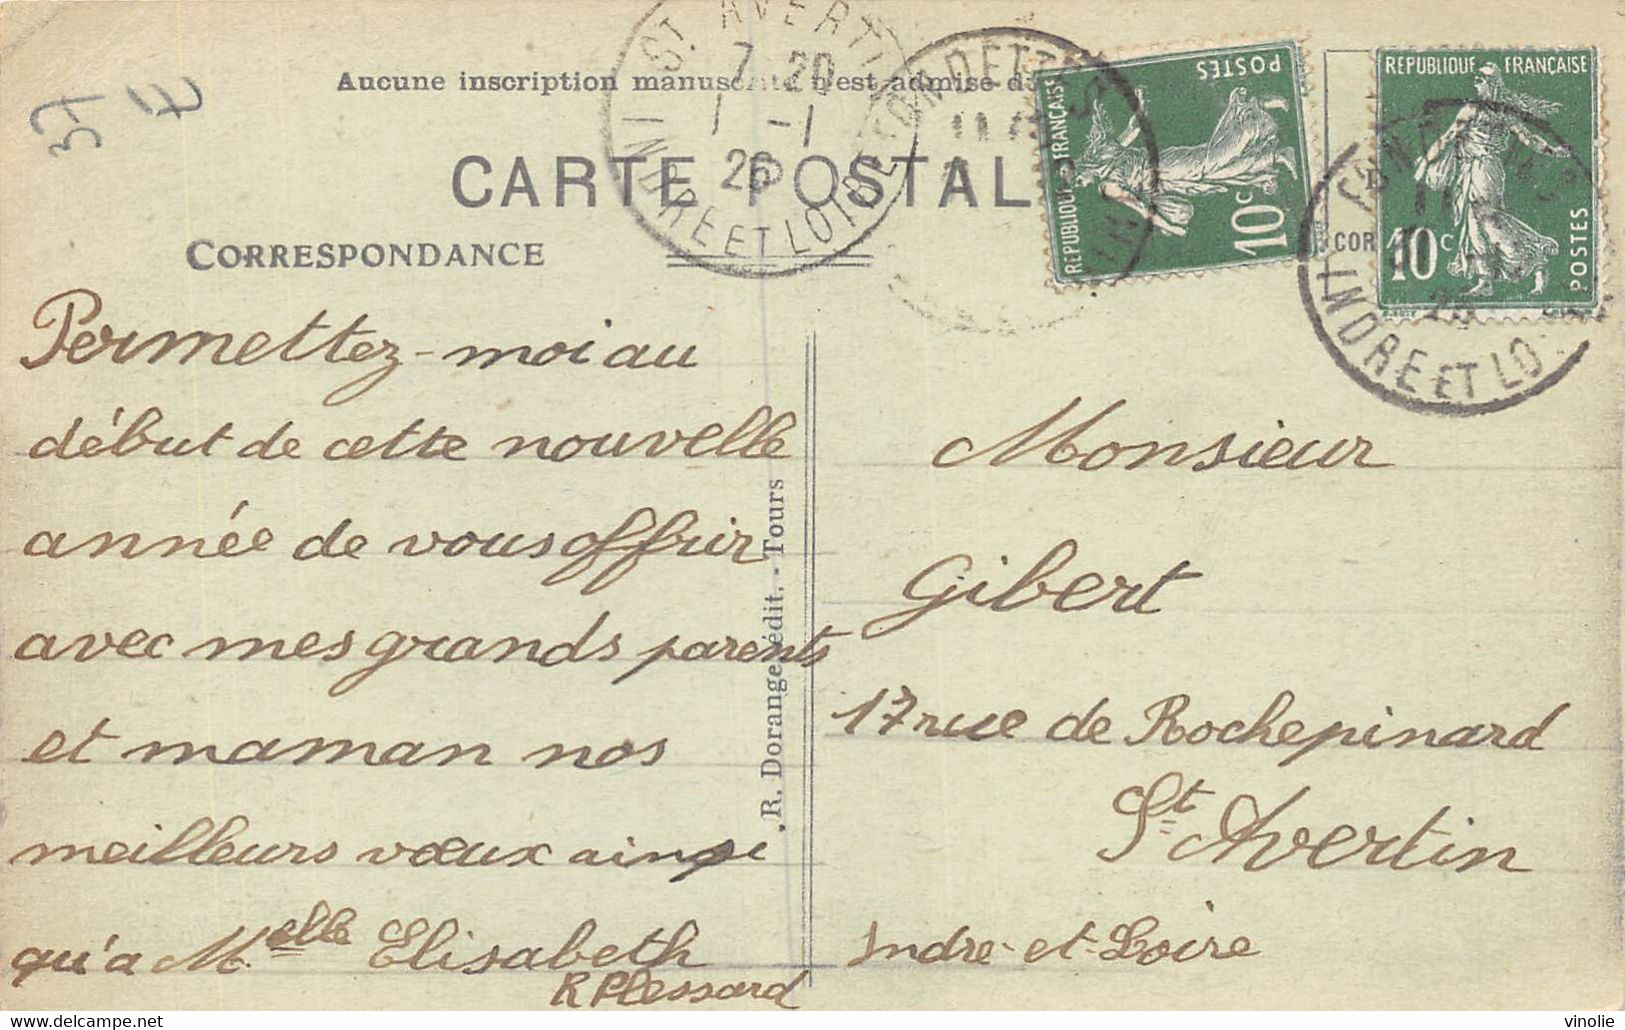 37
Aucune inscription manuscrite n'est admise
CARTE POSTALE
CORRESPONDANCE
ST AVERTIN
7-20
1 -1
26
INDRE ET LOIRE
FONDETTES
REPUBLIQUE FRANÇAISE
POSTES
10c
REPUBLIQUE FRANÇAISE
POSTES
10c
COR
INDRE ET LO
Permettez-moi au
début de cette nouvelle
année de vous offrir
avec mes grands parents
et maman nos
meilleurs vœux ainsi
qu'à Melle Elisabeth
R Plessard
R. Dorange, édit. - Tours
Monsieur
Gibert
17 rue de Rochepinard
St Avertin
Indre-et-Loire
delcampe.net
vinolie